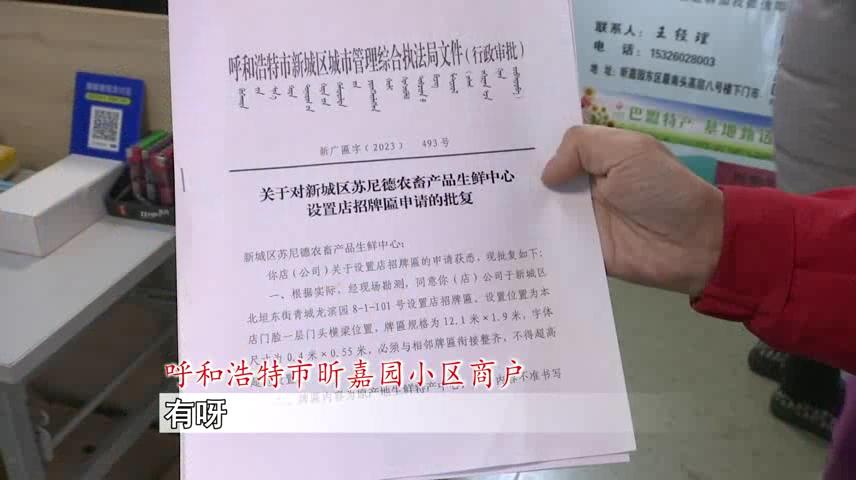 呼和浩特市新城区城市管理综合执法局文件（行政审批）
新广匾字（2023） 493号
关于对新城区苏尼德农畜产品生鲜中心
设置店招牌匾申请的批复
新城区苏尼德农畜产品生鲜中心：
你店（公司）关于设置店招牌匾的申请获悉，现批复如下：
一、根据实际，经现场勘测，同意你（店）公司于新城区
北垣东街青城龙滨园8-1-101号设置店招牌匾，设置位置为本
店门脸一层门头横梁位置，牌匾规格为12.1米×1.9米，字体
尺寸为0.4米×0.55米，必须与相邻牌匾衔接整齐，不得超高
牌匾内容为原产地生鲜特产中心，
内容不准书写
联系人：王经理
电话：15326028003
地址：昕嘉园东区最南头高层八号楼下门市
巴盟特产 基地路运
呼和浩特市昕嘉园小区商户
有呀